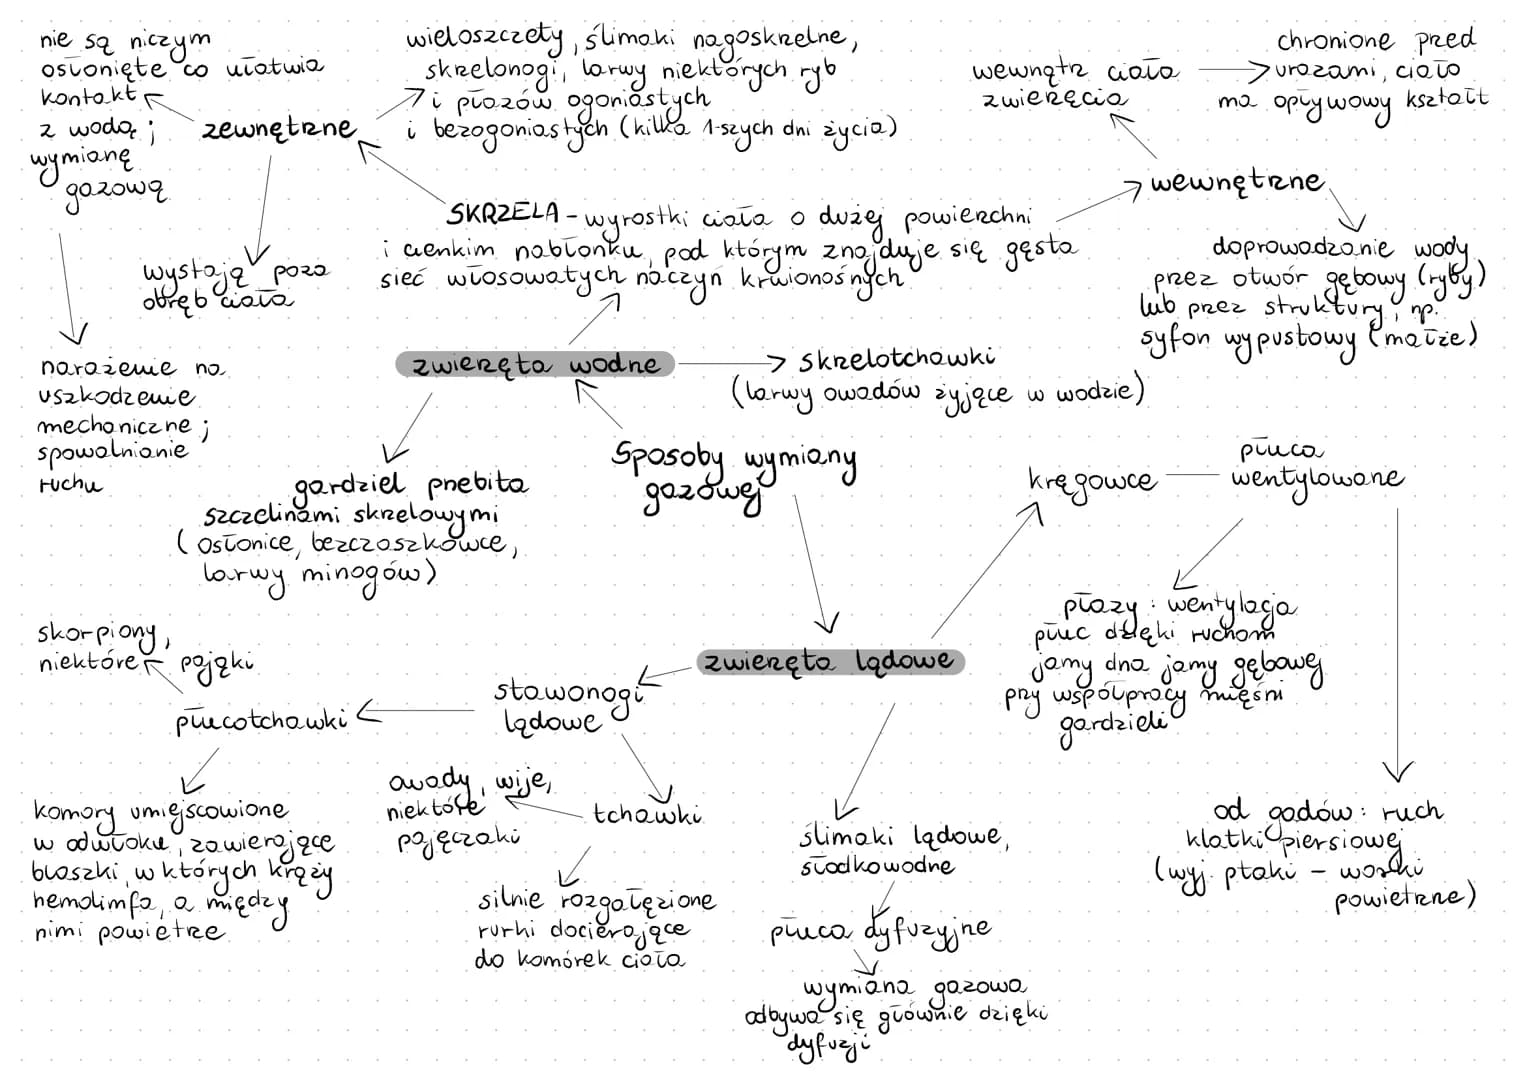 nie są niczym
osłonięte co ułatwia
kontakt
z wodą;
wymianę
gazową
zewnętrzne
wieloszczety, ślimaki nagoskrzelne,
skrzelonogi, larwy niektórych ryb
i płazów ogoniastych
i bezogoniastych (kilka 1-szych dni życia)
wewnątrz ciała
zwierzęcia
chronione przed
urazami, ciało
ma opływowy kształt
wewnętrzne
SKRZELA - wyrostki ciała o dużej powierzchni
i cienkim nabłonku, pod którym znajduje się gęsta
sieć włosowatych naczyń krwionośnych
wystają poza
obręb ciała
doprowadzanie wody
przez otwór gębowy (ryby)
lub przez struktury, np.
syfon wypustowy (małże)
narażenie na
uszkodzenie
mechaniczne;
spowalnianie
ruchu
zwierzęta wodne
skrzelotchawki
(larwy owadów żyjące w wodzie)
gardziel przebita
szczelinami skrzelowymi
(osłonice, bezczaszkowce,
larwy minogów)
Sposoby wymiany
gazowej
kręgowce
płuca
wentylowane
płazy: wentylacja
płuc dzięki ruchom
jamy dna jamy gębowej
przy współpracy mięśni
gardzieli
zwierzęta lądowe
skorpiony,
niektóre pająki
stawonogi
lądowe
płucotchawki
komory umiejscowione
w odwłoku, zawierające
blaszki, w których krąży
hemolimfa, a między
nimi powietrze
owady, wije,
niektóre
pajęczaki
tchawki
silnie rozgałęzione
rurki docierające
do komórek ciała
ślimaki lądowe,
słodkowodne
płuca dyfuzyjne
wymiana gazowa
odbywa się głównie dzięki
dyfuzji
od gadów: ruch
klatki piersiowej
(wyj. ptaki - worki
powietrzne)